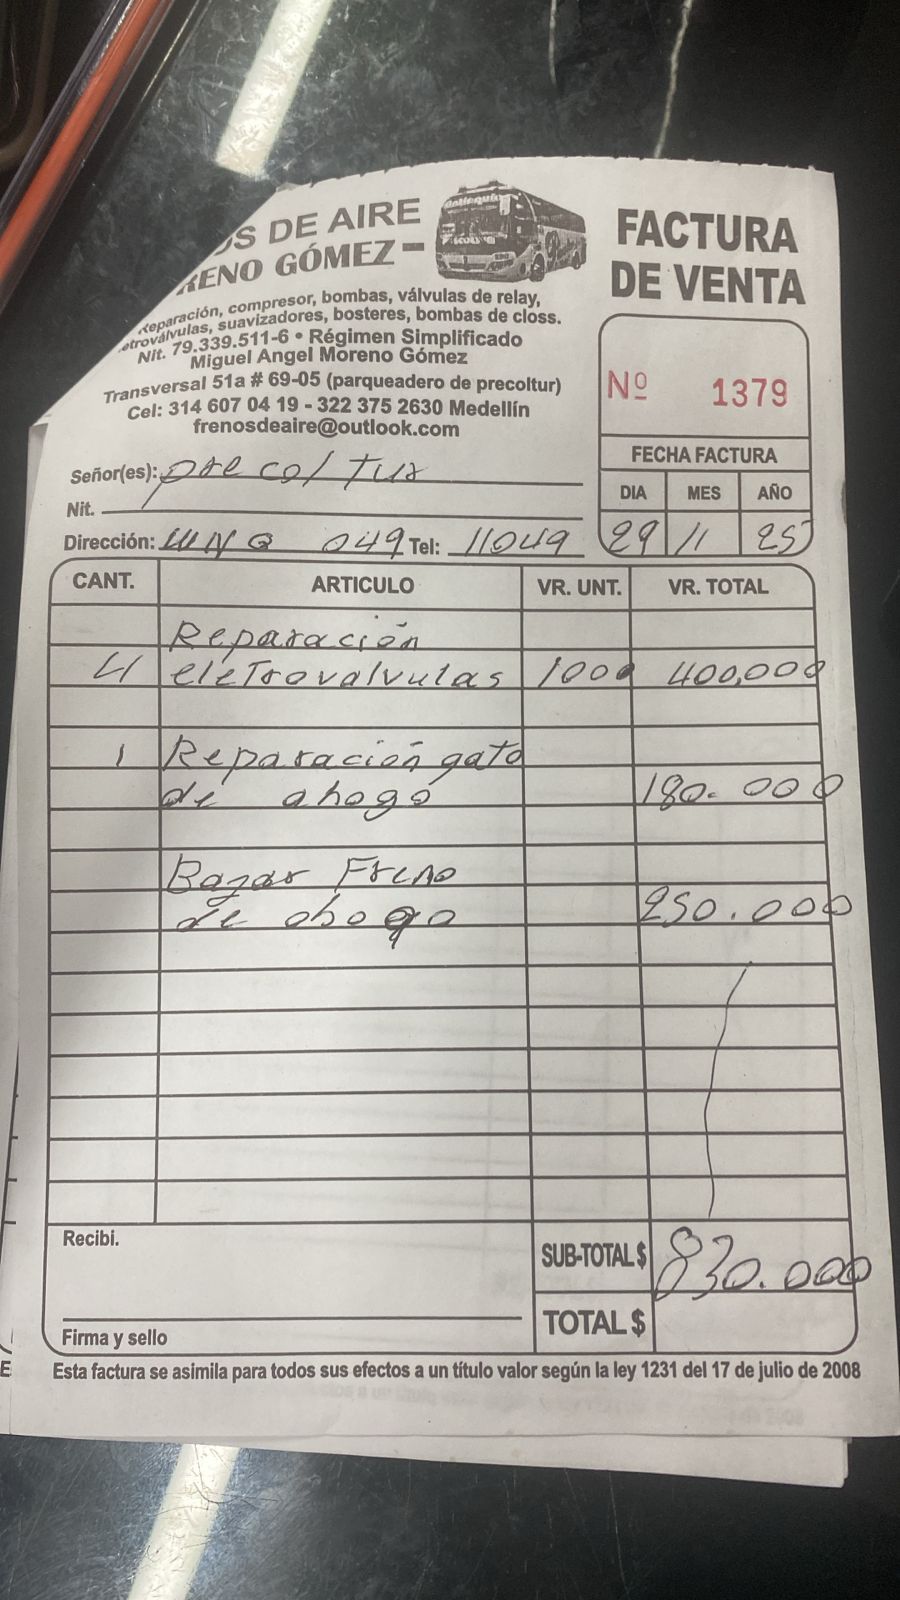 OS DE AIRE
RENO GÓMEZ
FACTURA
DE VENTA
Reparación, compresor, bombas, válvulas de relay,
etroválvulas, suavizadores, bosteres, bombas de closs.
Nit. 79.339.511-6 • Régimen Simplificado
Miguel Angel Moreno Gómez
Transversal 51a # 69-05 (parqueadero de precoltur)
Cel: 314 607 04 19 - 322 375 2630 Medellín
frenosdeaire@outlook.com
Nº 1379
FECHA FACTURA
DIA MES AÑO
29 11 25
Señor(es): precoltur
Nit.
Dirección: 049 Tel: 11049
CANT. ARTICULO VR. UNT. VR. TOTAL
Reparación
4 eletrovalvulas 1000 400,000
1 Reparación gato
de ahogo 180.000
Bazar Freno
de ahogo 250.000
Recibi.
SUB-TOTAL $ 830.000
TOTAL $
Firma y sello
Esta factura se asimila para todos sus efectos a un título valor según la ley 1231 del 17 de julio de 2008